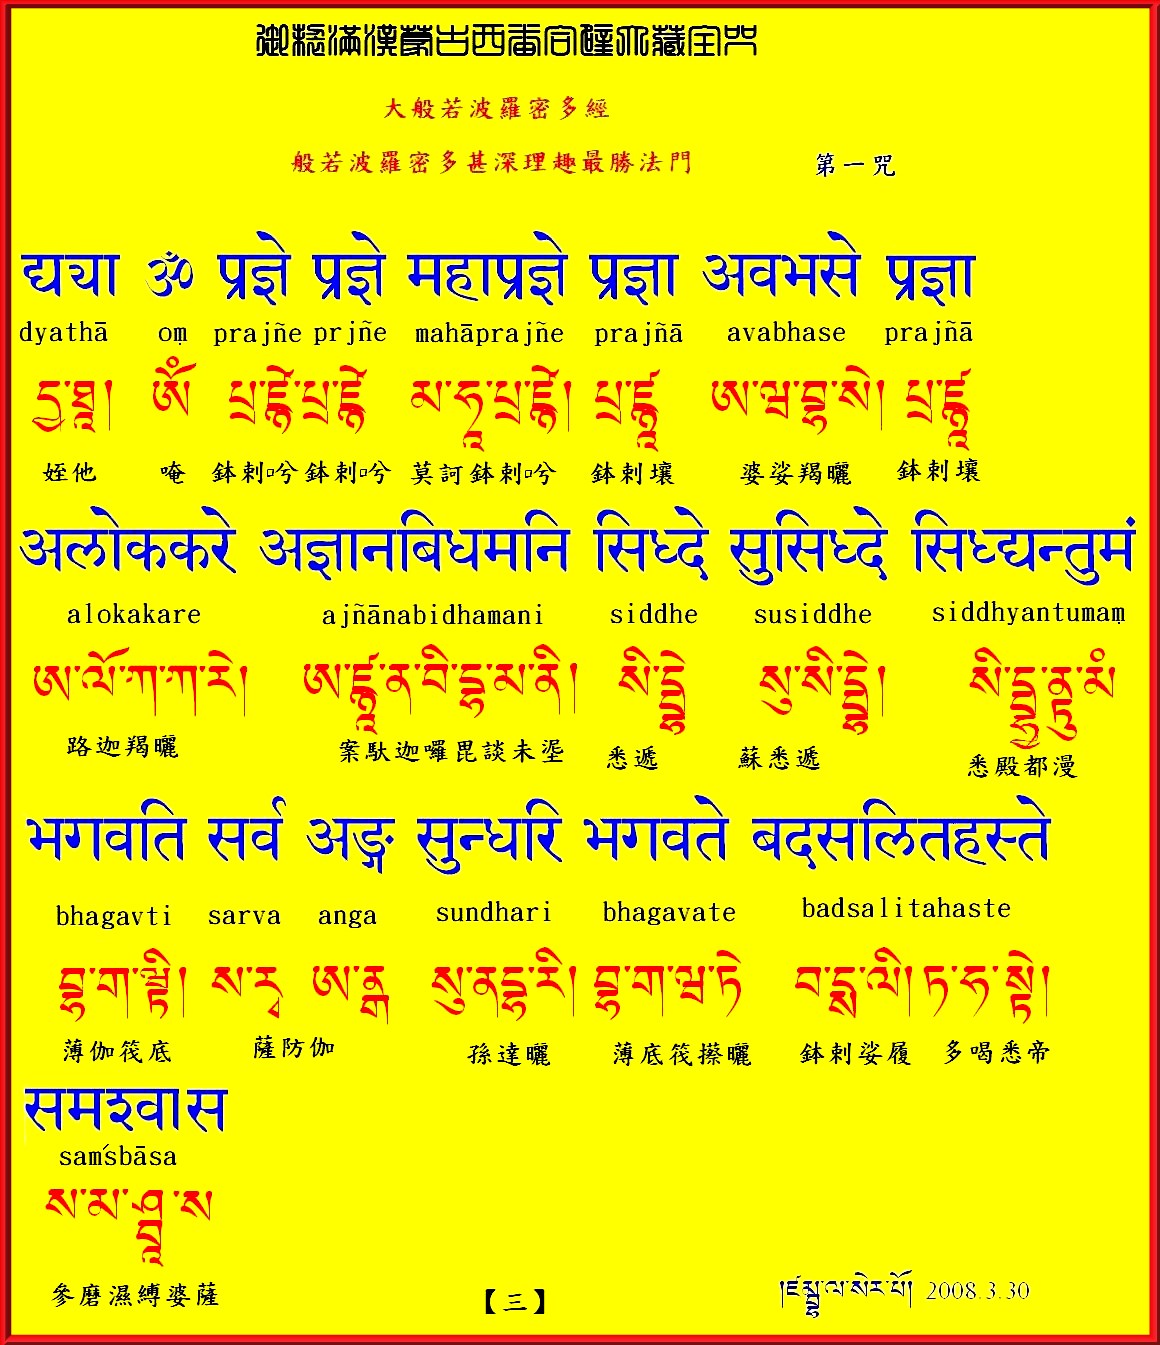 御製滿漢蒙古西番合璧大藏全咒
大般若波羅密多經
般若波羅密多甚深理趣最勝法門 第一咒
द्यया ॐ प्रज्ञे प्रज्ञे महाप्रज्ञे प्रज्ञा अवभसे प्रज्ञा
dyathā oṃ prajñe prjñe mahāprajñe prajñā avabhase prajñā
དྱ་ཐཱ། ཨོཾ པྲ་ཛྙེ་པྲ་ཛྙེ མ་ཧཱ་པྲ་ཛྙེ། པྲ་ཛྙཱ ཨ་ཝ་བྷ་སེ། པྲ་ཛྙཱ
姪他 唵 鉢剌吤 鉢剌吤 莫訶鉢剌吤 鉢剌壤 婆娑羯曬 鉢剌壤
अलोककरे अज्ञानबिधमनि सिध्दे सुसिध्दे सिध्द्यन्तुमं
alokakare ajñānabidhamani siddhe susiddhe siddhyantumaṃ
ཨ་ལོ་ཀ་ཀ་རེ། ཨ་ཛྙཱ་ན་བི་དྷ་མ་ནི། སི་དྡྷེ སུ་སི་དྡྷེ། སི་དྡྷྱ་ནྟུ་མཾ
路迦羯曬 案馱迦囉毘談未埿 悉遞 蘇悉遞 悉殿都漫
भगवति सर्व अङ्ग सुन्धरि भगवते बदसलितहस्ते
bhagavti sarva anga sundhari bhagavate badsalitahaste
བྷ་ག་ཝྟི། ས་རྭ ཨ་ནྒ སུ་ནདྷ་རི། བྷ་ག་ཝ་ཏེ བ་དྶ་ལི། ཏ་ཧ་སྟེ།
薄伽筏底 薩防伽 孫達曬 薄底筏攃曬 鉢剌娑履 多喝悉帝
समश्वास
samśbāsa
ས་མ་ཤྦཱ་ས
參磨濕縛婆薩
【三】 2008.3.30